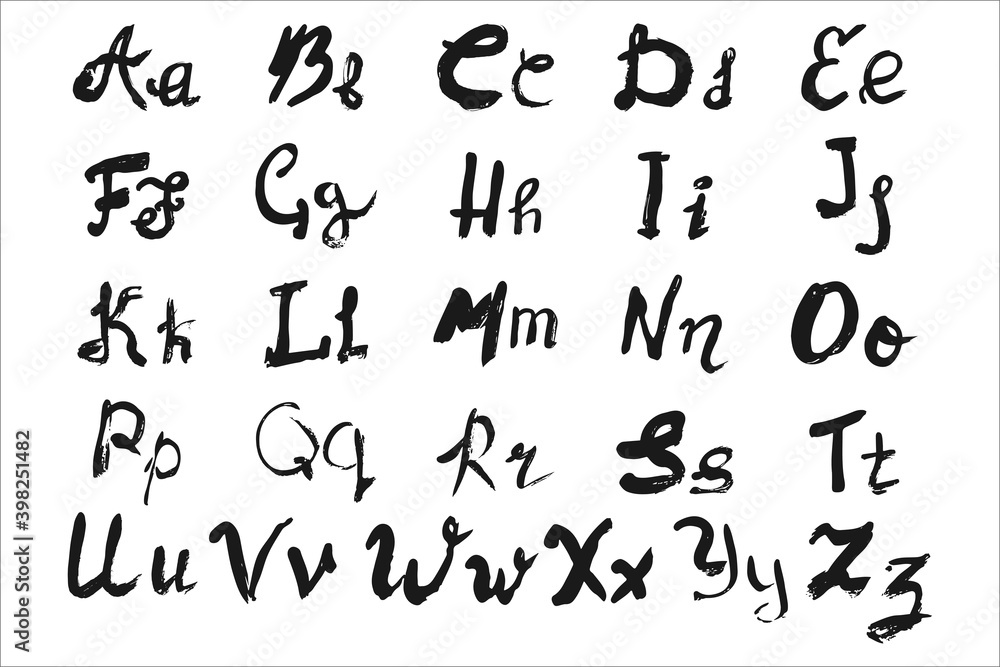 Aa Bb Cc Dd Ee
Ff Gg Hh Ii Jj
Kk Ll Mm Nn Oo
Pp Qq Rr Ss Tt
Uu Vv Ww Xx Yy Zz
Adobe Stock | #398251482